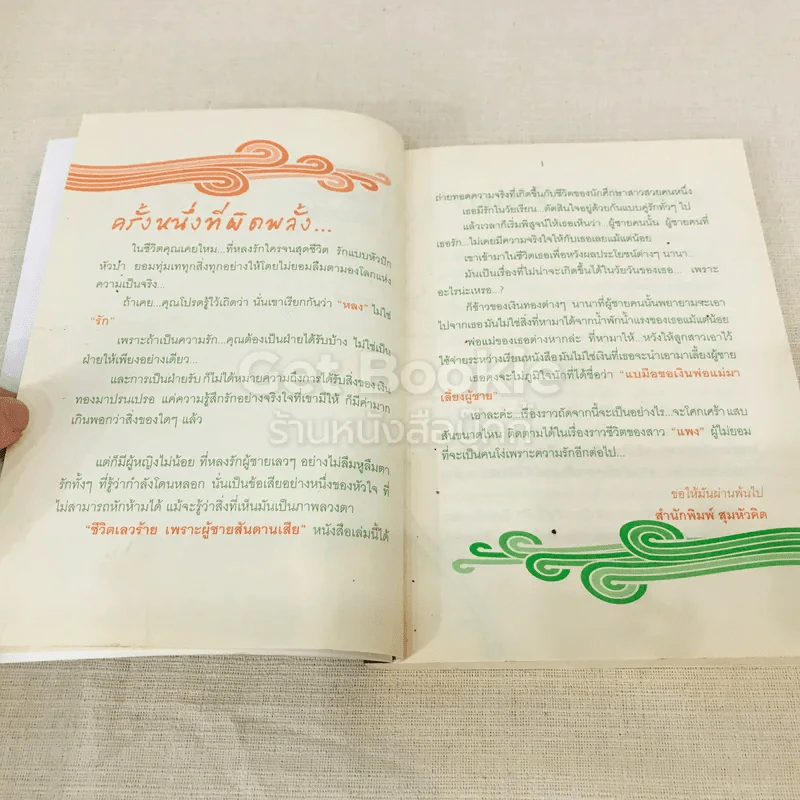 ครั้งหนึ่งที่ผิดพลั้ง...
ในชีวิตคุณเคยไหม...ที่หลงรักใครจนสุดชีวิต รักแบบหัวปัก
หัวปำ ยอมทุ่มเททุกสิ่งทุกอย่างให้โดยไม่ยอมลืมตามองโลกแห่ง
ความเป็นจริง...
ถ้าเคย...คุณโปรดรู้ไว้เถิดว่า นั่นเขาเรียกกันว่า "หลง" ไม่ใช่
"รัก"
เพราะถ้าเป็นความรัก...คุณต้องเป็นฝ่ายได้รับบ้าง ไม่ใช่เป็น
ฝ่ายให้เพียงอย่างเดียว...
และการเป็นฝ่ายรับ ก็ไม่ได้หมายความถึงการได้รับสิ่งของ เงิน
ทองมาปรนเปรอ แค่ความรู้สึกรักอย่างจริงใจที่เขามีให้ ก็มีค่ามาก
เกินพอกว่าสิ่งของใดๆ แล้ว
แต่ก็มีผู้หญิงไม่น้อย ที่หลงรักผู้ชายเลวๆ อย่างไม่ลืมหูลืมตา
รักทั้งๆ ที่รู้ว่ากำลังโดนหลอก นั่นเป็นข้อเสียอย่างหนึ่งของหัวใจ ที่
ไม่สามารถหักห้ามได้ แม้จะรู้ว่าสิ่งที่เห็นมันเป็นภาพลวงตา
"ชีวิตเลวร้าย เพราะผู้ชายสันดานเสีย" หนังสือเล่มนี้ได้
ถ่ายทอดความจริงที่เกิดขึ้นกับชีวิตของนักศึกษาสาวสวยคนหนึ่ง
เธอมีรักในวัยเรียน...ตัดสินใจอยู่ด้วยกันแบบคู่รักทั่วๆ ไป
แล้วเวลาก็เริ่มพิสูจน์ให้เธอเห็นว่า... ผู้ชายคนนั้น ผู้ชายคนที่
เธอรัก...ไม่เคยมีความจริงใจให้กับเธอเลยแม้แต่น้อย
เขาเข้ามาในชีวิตเธอเพื่อหวังผลประโยชน์ต่างๆ นานา...
มันเป็นเรื่องที่ไม่น่าจะเกิดขึ้นได้ในวัยวันของเธอ... เพราะ
อะไรน่ะเหรอ...?
ก็ข้าวของเงินทองต่างๆ นานาที่ผู้ชายคนนั้นพยายามจะเอา
ไปจากเธอ มันไม่ใช่สิ่งที่หามาได้จากน้ำพักน้ำแรงของเธอแม้แต่น้อย
พ่อแม่ของเธอต่างหากล่ะ ที่หามาให้...หวังให้ลูกสาวเอาไว้
ใช้จ่ายระหว่างเรียนหนังสือ มันไม่ใช่เงินที่เธอจะนำเอามาเลี้ยงผู้ชาย
เธอคงจะไม่ภูมิใจนักที่ได้ชื่อว่า "แบมือขอเงินพ่อแม่มา
เลี้ยงผู้ชาย"
เอาละค่ะ...เรื่องราวถัดจากนี้จะเป็นอย่างไร...จะโศกเศร้า แสบ
สันขนาดไหน ติดตามได้ในเรื่องราวชีวิตของสาว "แพง" ผู้ไม่ยอม
ที่จะเป็นคนโง่เพราะความรักอีกต่อไป...
ขอให้มันผ่านพ้นไป
สำนักพิมพ์ สุมหัวคิด
ร้านหนังสือ